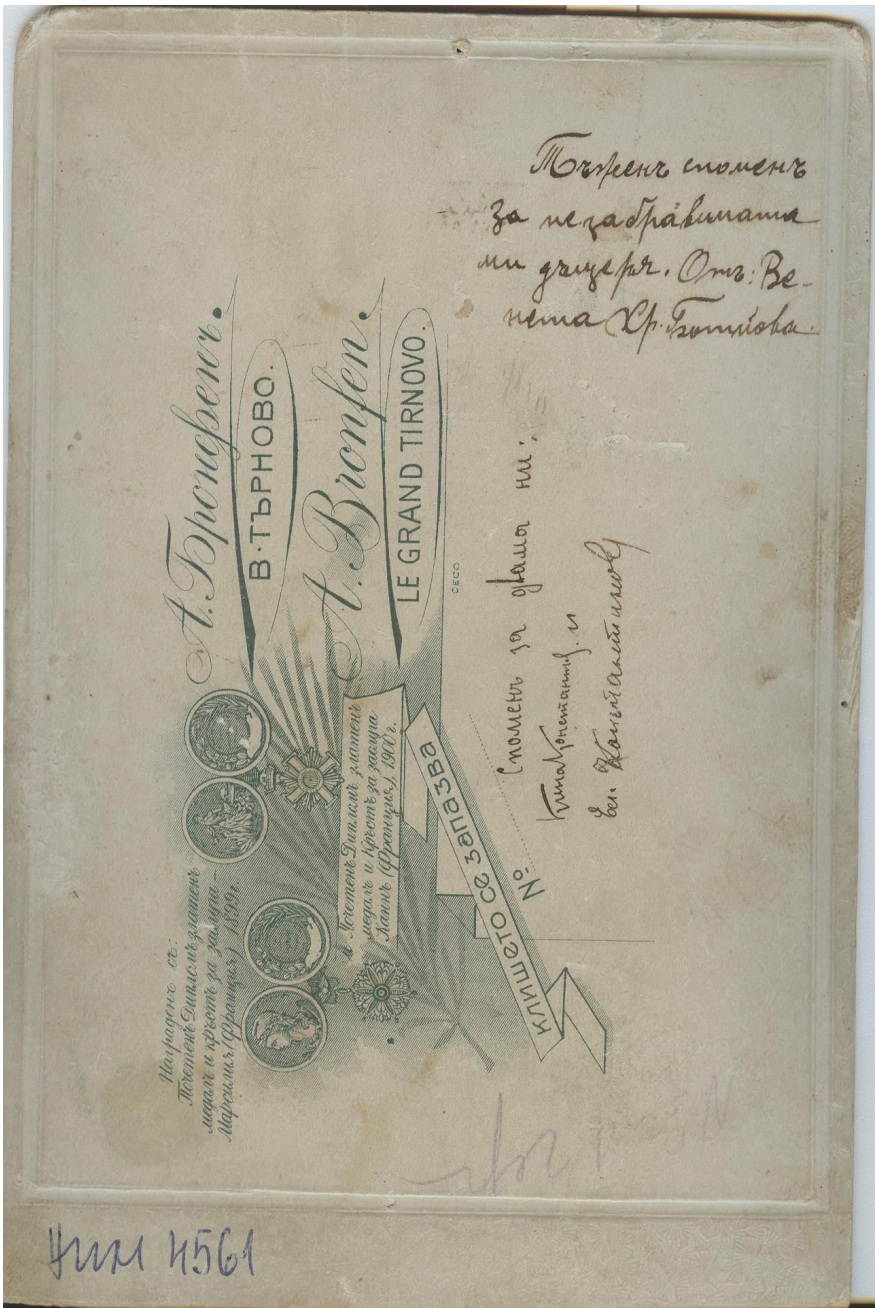 Тъженъ споменъ
За незабравимата
ми дъщеря. Отъ: Ве-
нета Хр. Ботйова.
А. Бронфенъ.
В. ТЪРНОВО.
A. Bronfen.
LE GRAND TIRNOVO.
CECO
Награденъ съ:
Почетенъ Дипломъ златенъ
медалъ и кръстъ за заслуга –
Марсилия (Франция) 1899 г.
и Почетенъ Дипломъ златенъ
медалъ и Кръстъ за заслуга
Каннъ (Франция), 1900 г.
КЛИШЕТО СЕ ЗАПАЗВА
№.
Споменъ за двама ни.
и
Вел. Константиновъ
НИМ 4561